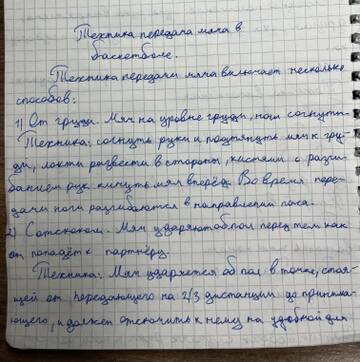 Техника передача мяча в
баскетболе.
Техника передачи мяча включает несколько
способов:
1) От груди. Мяч на уровне груди, ноги согнуты.
Техника: согнуть руки и подтянуть мяч к гру-
ди, локти развести в стороны, кистями с разги-
банием рук кинуть мяч вперёд. Во время пере-
дачи ноги разгибаются в направлении паса.
2) С отскоком. Мяч ударяют об пол перед тем как
он попадёт к партнёру.
Техника: Мяч ударяется об пол в точке, стоя-
щей от передающего на 2/3 дистанции до принима-
ющего, и должен отскочить к нему на удобной для